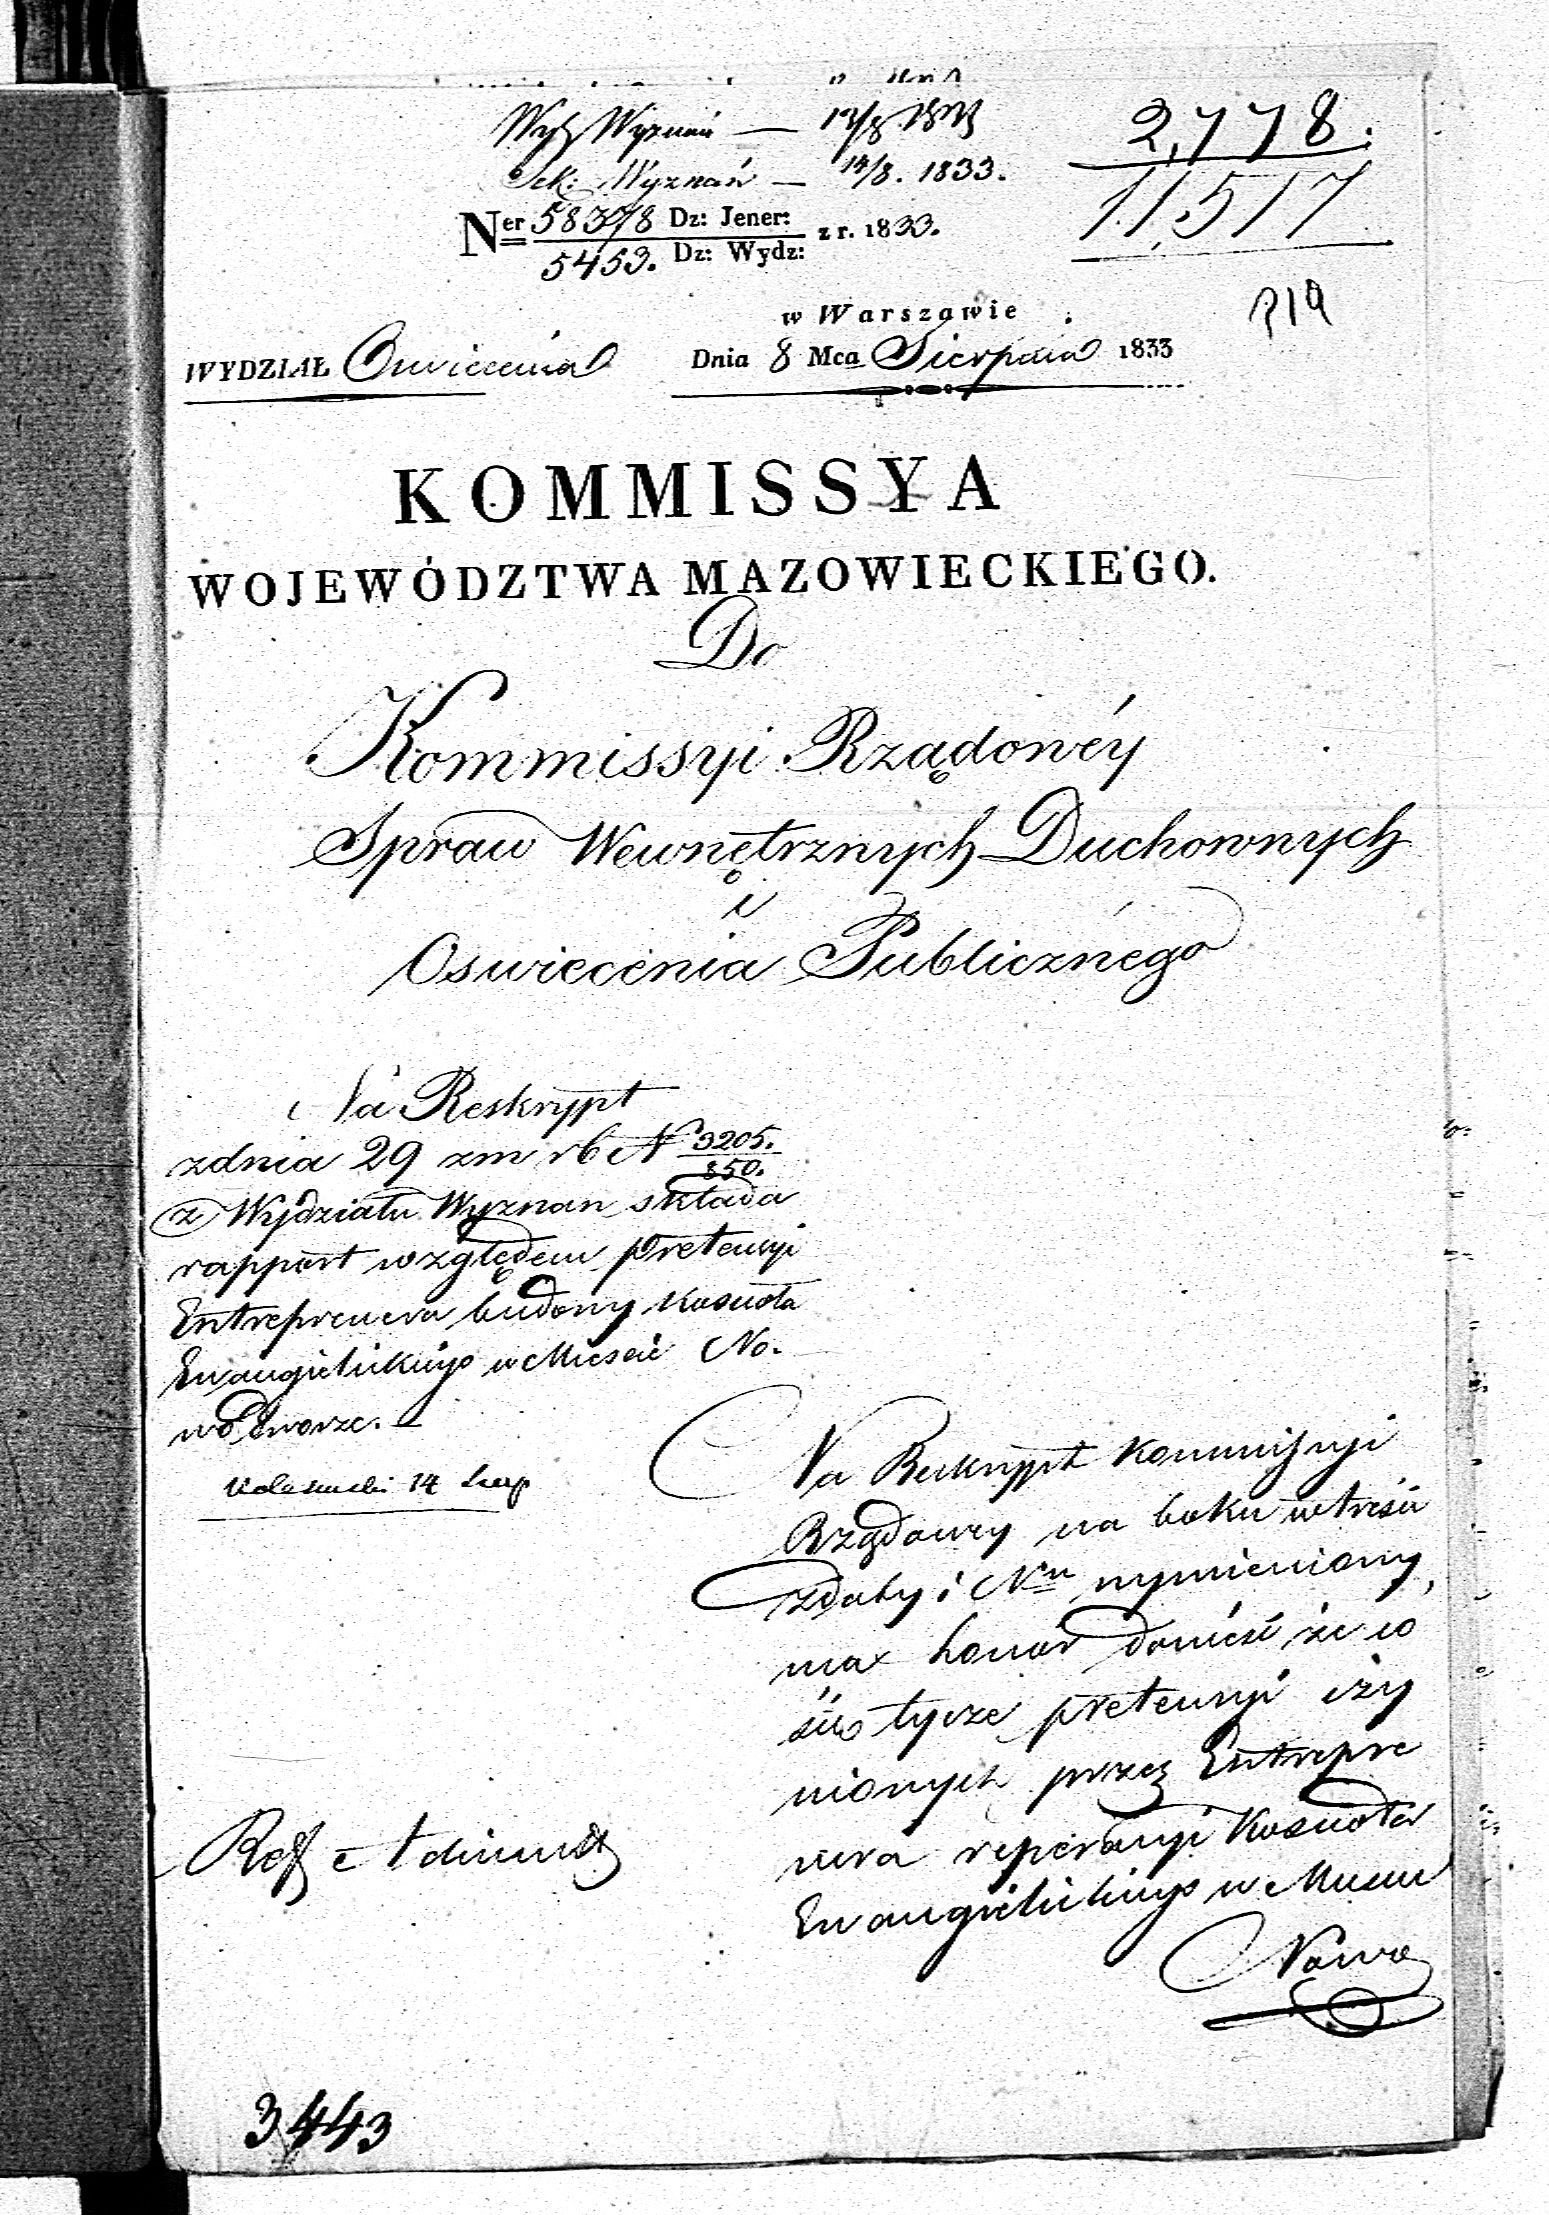 Wyz Wyznań — 12/8 1833
Sek: Wyznań — 14/8. 1833.
2,778.
11,517
Ner 58378 Dz: Jener: z r. 1833.
5453. Dz: Wydz:
w Warszawie
WYDZIAŁ Oswiecenia Dnia 8 Mca Sierpnia 1833
KOMMISSYA
WOJEWÓDZTWA MAZOWIECKIEGO.
Do
Kommissyi Rządowéy
Spraw Wewnętrznych Duchownych
i
Oswiecenia Publicznégo
Na Reskrypt
zdnia 29 zm rb N 3205.
850.
z Wydziału Wyznan składa
rapport względem pretensyi
Entreprenera budowy Koscioła
Ewangielickiego w Miescie No-
wodworze.
14 Sierp
Na Reskrypt Kommissyi
Rządowey na boku w tresci
z daty i Nru wymieniony,
ma honor doniesć że co
się tycze pretensyi czy
nionych przez Entrepre
nera reperacyi Koscioła
Ewangielickiego w Miescie
Nowo
3443